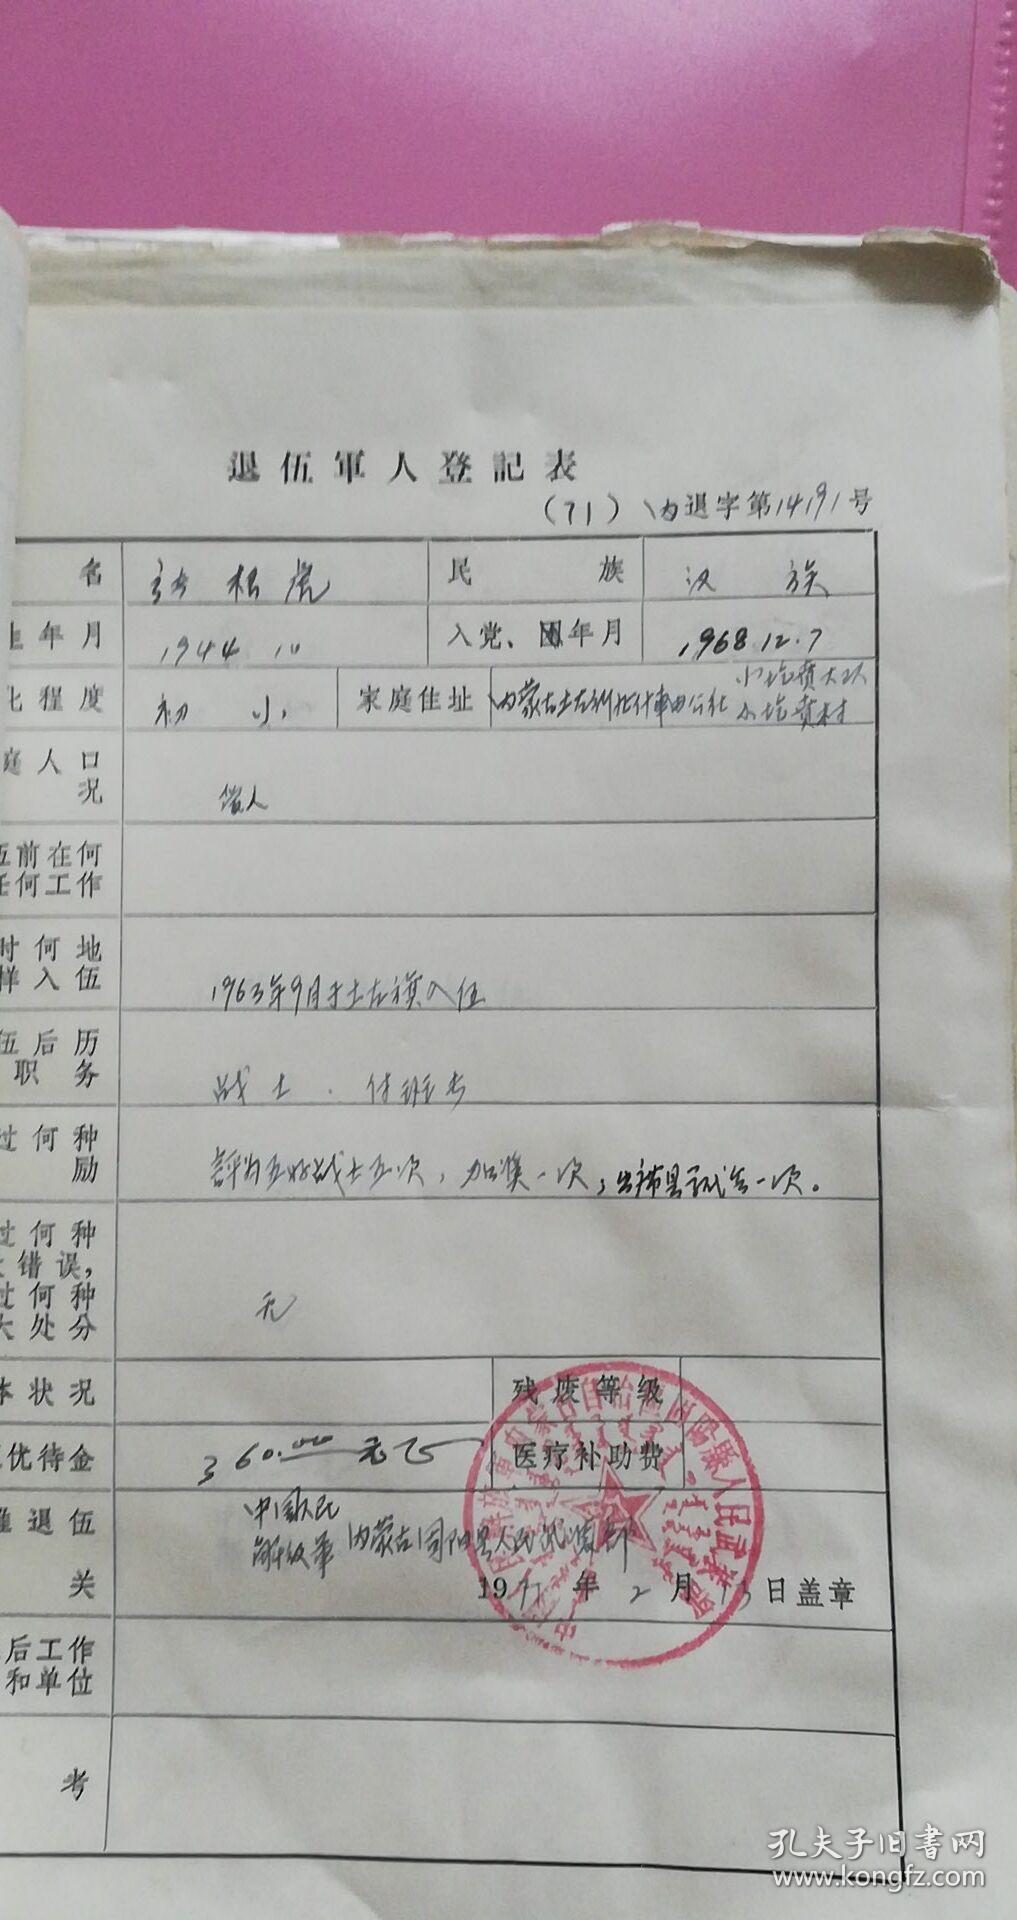 退伍軍人登記表
(71)内退字第14191号
名 张根虎 民族 汉族
生年月 1944 10 入党、团年月 1968.12.7
化程度 初小 家庭住址 内蒙古土左 公社
大队
村
庭人口
况
人
伍前在何
任何工作
时何地
样入伍
1963年9月于土左旗入伍
伍后历
职务
战士. 付班长
过何种
励
評为五好战士五次,加奖一次,出席 一次。
过何种
大错误,
过何种
大处分
无
体状况 残废等级
优待金 360.00元 医疗补助费
准退伍
关
中国人民
解放军 内蒙古固阳县人民武装部
1971年2月13日盖章
后工作
和单位
考
孔夫子旧书网
www.kongfz.com